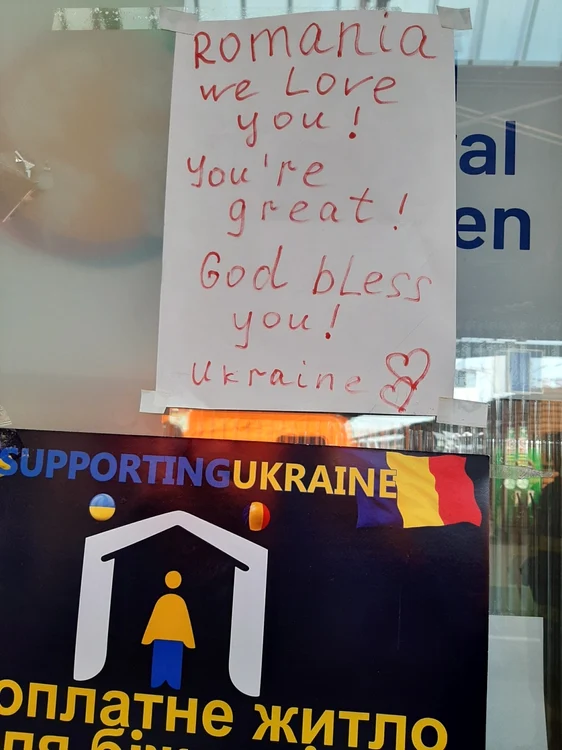 Romania
we Love
you!
You're
great!
God bless
you!
Ukraine
SUPPORTINGUKRAINE
оплатне житло